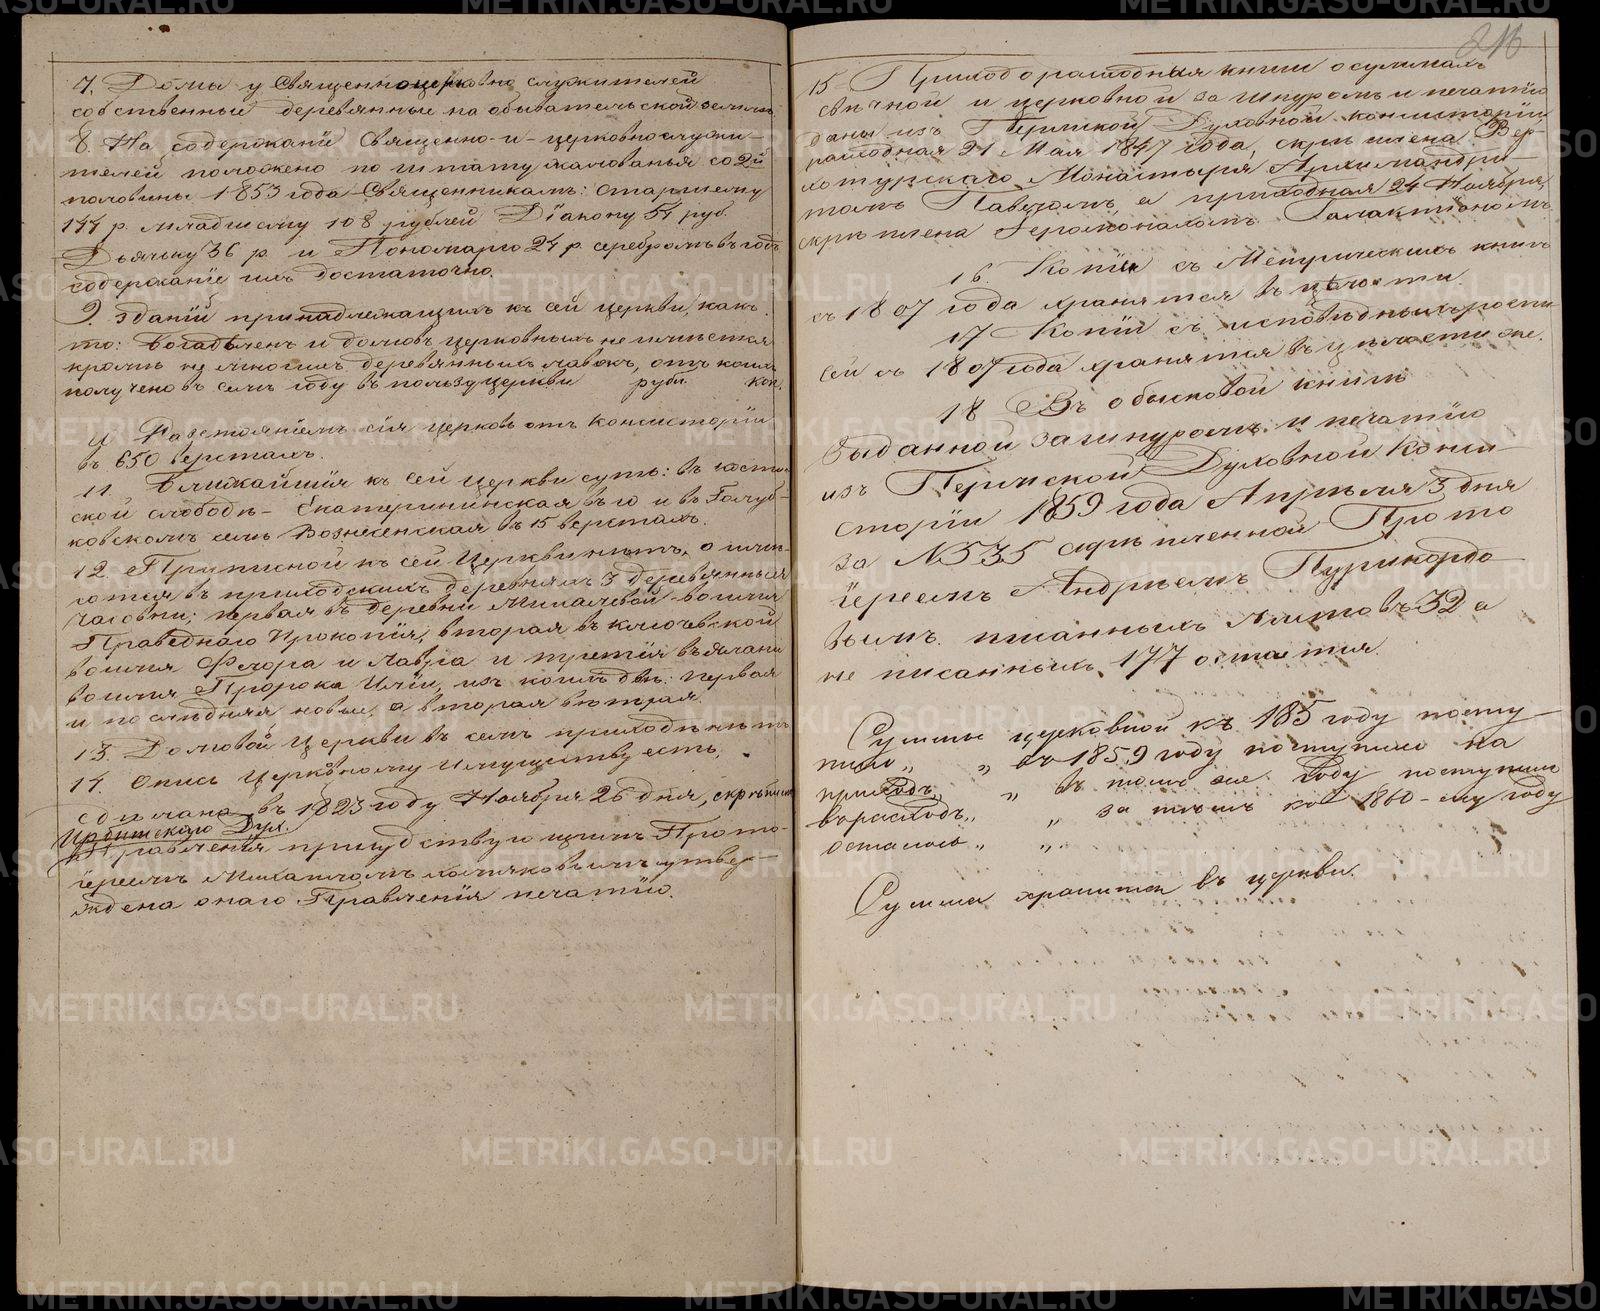 7. Домы у Священноцерковно служителей
собственные деревянные на обывательской земли.
8. На содержаніи Священно-и-церковнослужи-
телей положено по штату жалованья со 2й
половины 1853 года Священникамъ: старшему
144 р. младшему 108 рублей Діакону 54 руб.
Дьячку 36 р. и Пономарю 24 р. серебромъ въ годъ
содержаніе ихъ достаточно.
9. Зданій принадлежащихъ къ сей церкви, какъ
то: богадѣленъ и домовъ церковныхъ не имѣется
кромѣ не многихъ деревянныхъ лавокъ, отъ коихъ
получено въ семъ году въ пользу церкви рубл. коп.
Разстояніемъ сія церковь отъ Консисторіи
въ 650 верстахъ.
11. Ближайшія къ сей церкви суть: въ
ской слободѣ - Екатерининская въ 10 и въ
ковскомъ селѣ Вознесенская въ 15 верстахъ.
12. Приписной къ сей Церкви нѣтъ, а имѣ-
ются въ приходскихъ деревняхъ 3 деревянныя
часовни; первая въ деревни во имя
Праведнаго Прокопія, вторая въ Ключевской
во имя Флора и Лавра и третія въ
во имя Пророка Иліи, изъ коихъ двѣ: первая
и послѣдняя новые, а вторая ветхая.
13. Домовой Церкви въ семъ приходѣ нѣтъ
14. Опись Церковному имуществу есть,
сдѣлана въ 1823 году Ноября 26 дня, скрѣплена
Ирбитскаго Дух.
Правленія присудствующимъ Прото-
іереемъ Михаиломъ Хомяковымъ утвер-
ждена онаго Правленія печатію.
216
15 Приходорасходныя книги о суммахъ
свѣчной и церковной за шнуромъ и печатію
даны изъ Пермской Духовной консисторіи
расходная 21 Мая 1847 года, скрѣплена Вер-
хотурскаго Монастыря Архимандри-
томъ Павломъ а приходная 24 Ноября,
скрѣплена Іеромонахомъ Галактіономъ
16. Копіи съ Метрическихъ книгъ
съ 1807 года хранятся въ цѣлости.
17 Копіи съ исповѣдныхъ роспи
сей съ 1807 года хранятся въ цѣлости же.
18 Въ обысковой книгѣ
выданной за шнуромъ и печатію
изъ Пермской Духовной Конси-
сторіи 1859 года Апрѣля 3 дня
за № 535 скрѣпленной Прото
іереемъ Андреемъ
вымъ писанныхъ листовъ 32 а
не писанныхъ 177 остается.
Суммы церковной къ 185 году посту
пило „ „ въ 1859 году поступило на
приходъ „ въ томъ же году поступило
въ расходъ „ „ за тѣмъ ко 1860-му году
осталось „ „
Сумма хранится въ церкви.